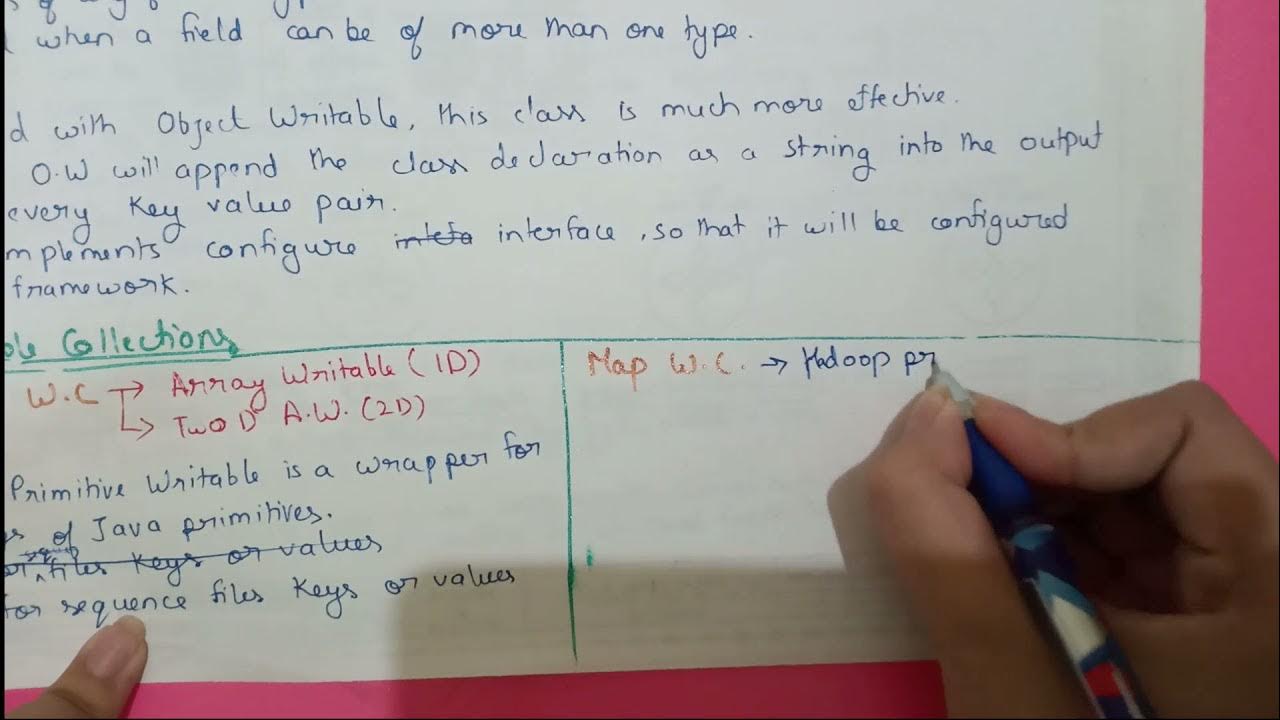 when a field can be of more than one type.
d with Object Writable, this class is much more effective.
O.W will append the class declaration as a string into the output
every Key value pair.
mplements configure interface, so that it will be configured
framework.
ble Collections
W.C → Array Writable (1D)
↳ Two D A.W. (2D)
Primitive Writable is a wrapper for
of Java primitives.
files Keys or values
for sequence files Keys or values
Map W.C. → Hadoop pr